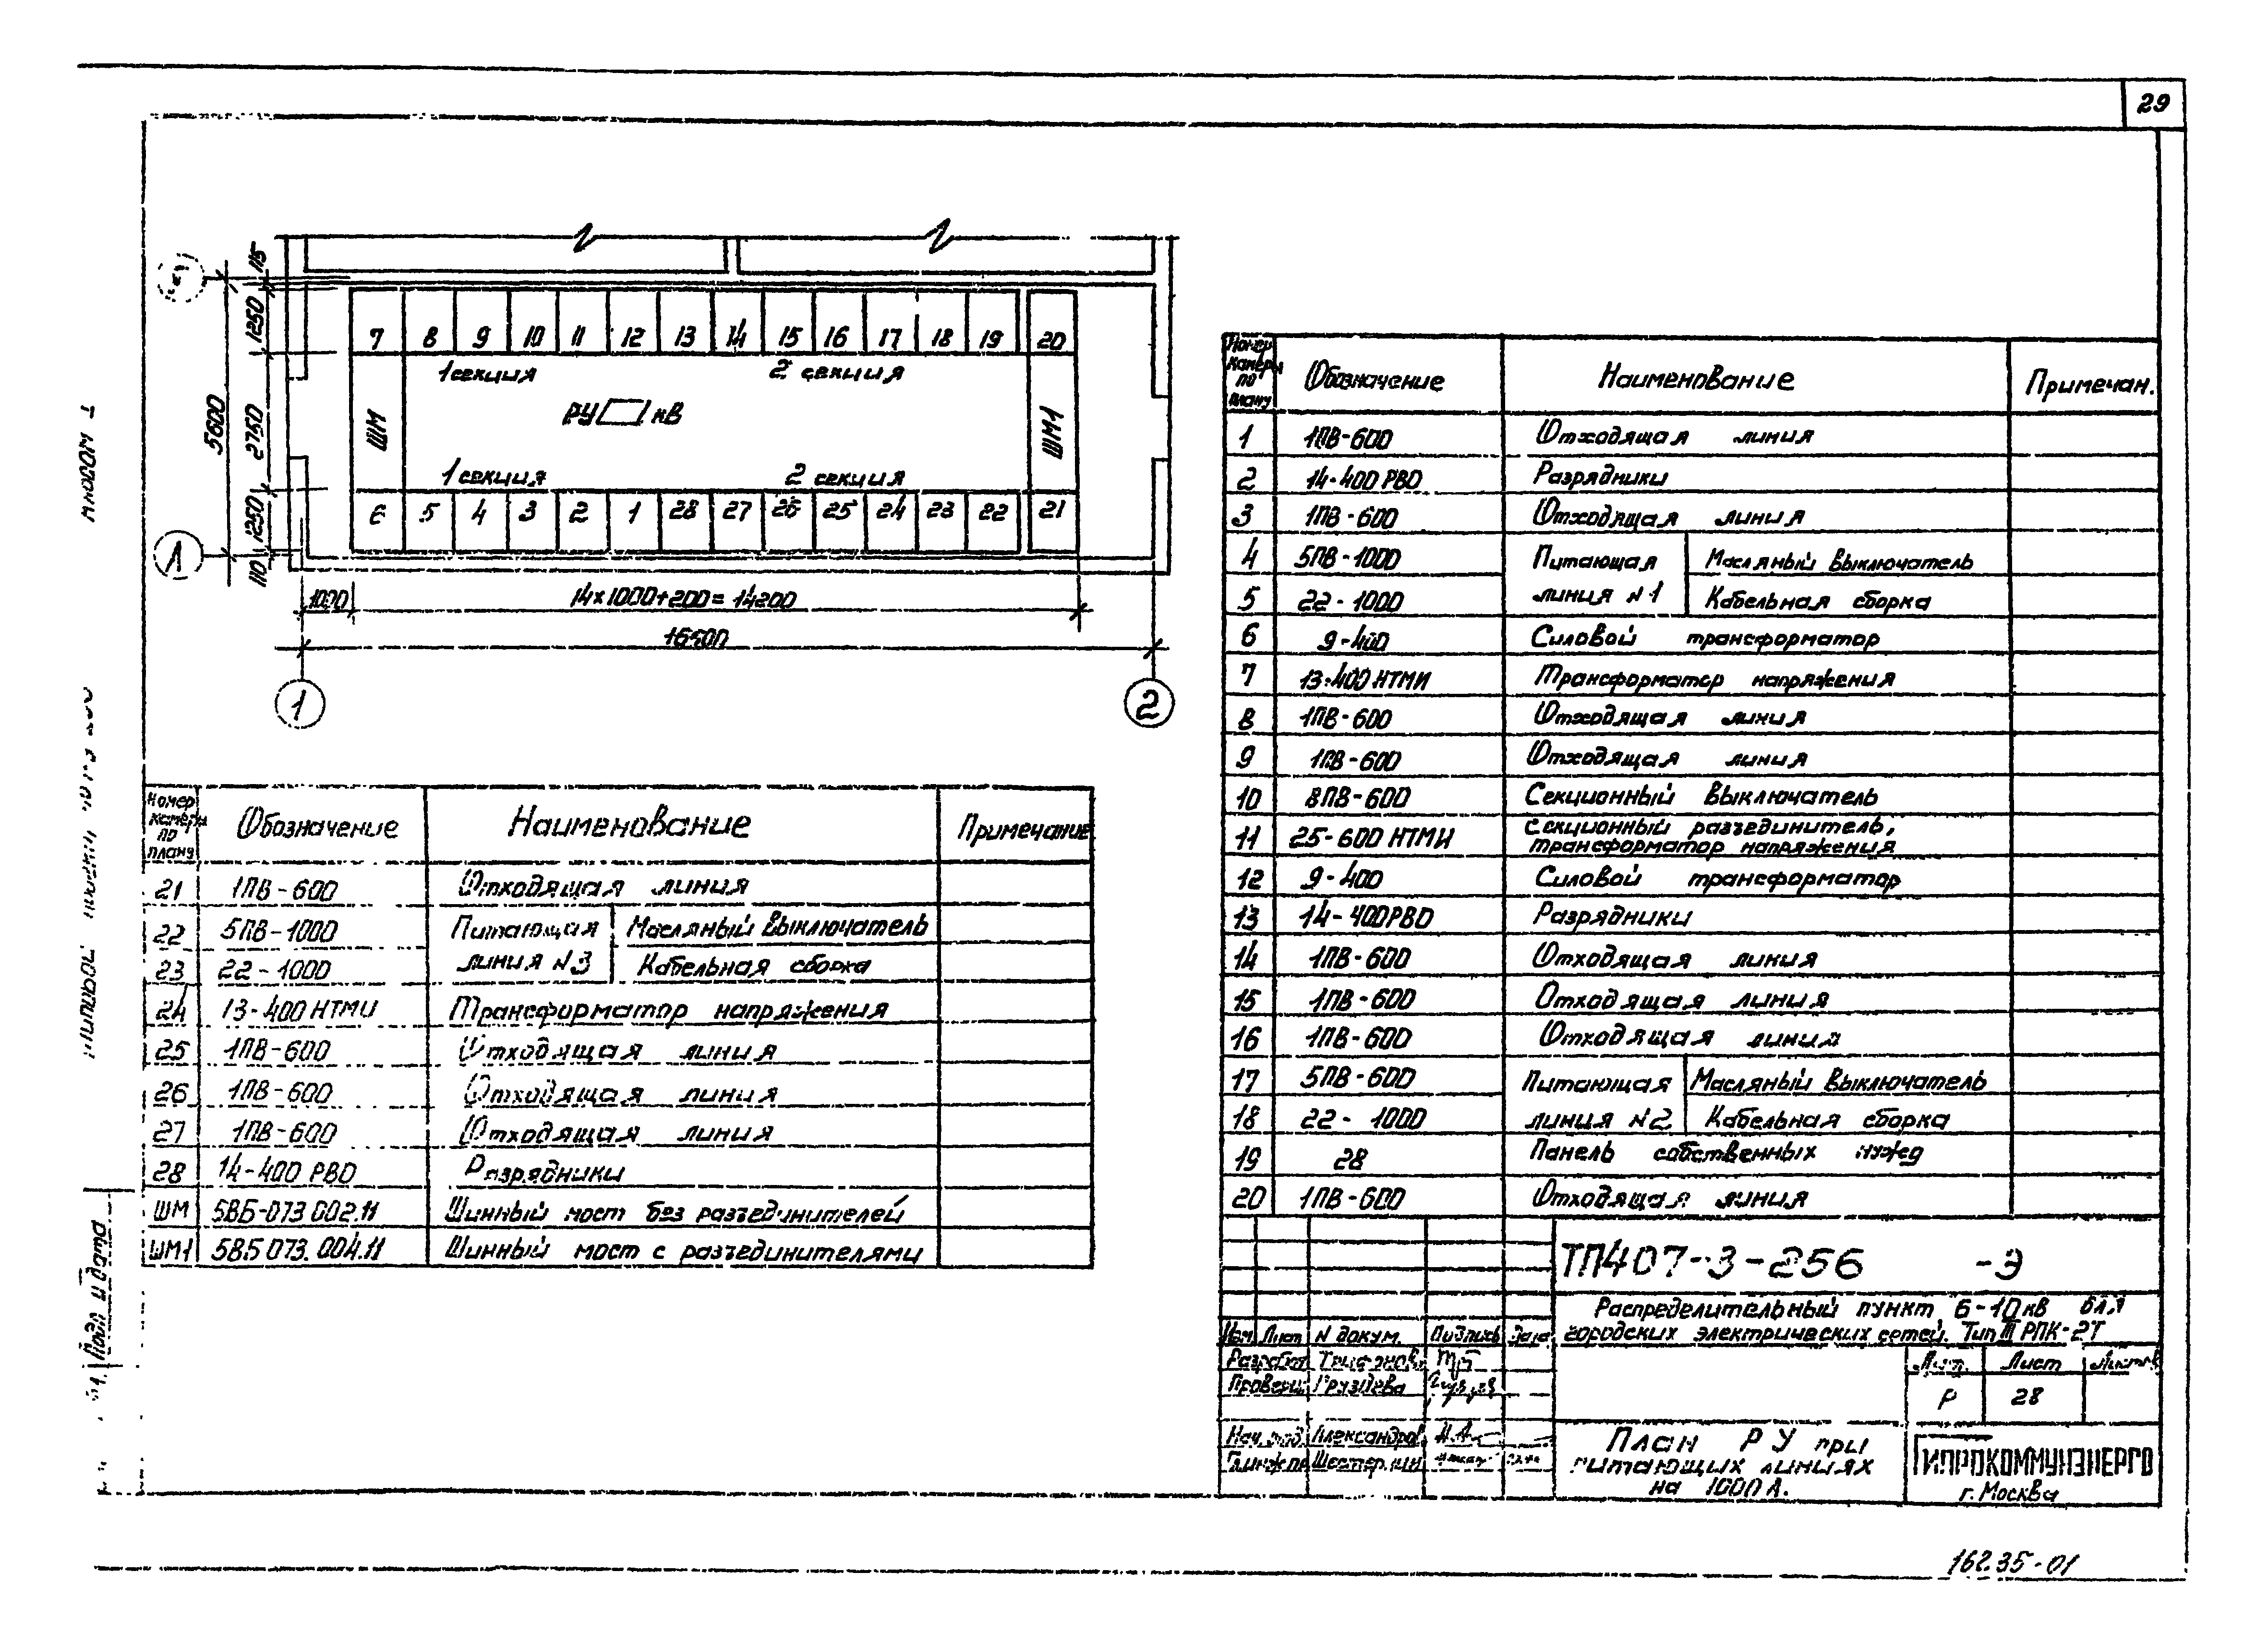 29
115
1250
2750
1250
110
5600
7 8 9 10 11 12 13 14 15 16 17 18 19 20
1 секция 2 секция
РУ кВ
ШМ ШМ1
1 секция 2 секция
6 5 4 3 2 1 28 27 26 25 24 23 22 21
1
1000 14х1000+200=14200
16500
1 2
Номер камеры по плану Обозначение Наименование Примечание
21 1ПВ-600 Отходящая линия
22 5ПВ-1000 Питающая Масляный выключатель
23 22-1000 линия N3 Кабельная сборка
24 13-400 НТМИ Трансформатор напряжения
25 1ПВ-600 Отходящая линия
26 1ПВ-600 Отходящая линия
27 1ПВ-600 Отходящая линия
28 14-400 РВО Разрядники
ШМ 5ВБ-073 002.11 Шинный мост без разъединителей
ШМ1 5В5 073.004.11 Шинный мост с разъединителями
Номер камеры по плану Обозначение Наименование Примечан.
1 1ПВ-600 Отходящая линия
2 14-400 РВО Разрядники
3 1ПВ-600 Отходящая линия
4 5ПВ-1000 Питающая Масляный выключатель
5 22-1000 линия N1 Кабельная сборка
6 9-400 Силовой трансформатор
7 13-400 НТМИ Трансформатор напряжения
8 1ПВ-600 Отходящая линия
9 1ПВ-600 Отходящая линия
10 8ПВ-600 Секционный выключатель
11 25-600 НТМИ Секционный разъединитель,
трансформатор напряжения
12 9-400 Силовой трансформатор
13 14-400РВО Разрядники
14 1ПВ-600 Отходящая линия
15 1ПВ-600 Отходящая линия
16 1ПВ-600 Отходящая линия
17 5ПВ-600 Питающая Масляный выключатель
18 22-1000 линия N2 Кабельная сборка
19 28 Панель собственных нужд
20 1ПВ-600 Отходящая линия
ТП407-3-256 -Э
Распределительный пункт 6-10кВ для
городских электрических сетей. Тип III РПК-2Т
Изм Лист N докум. Подпись Дата
Разработ
Проверил Груздева
Лит. Лист Листов
Р 28
Нач. отд. Александров
План РУ при
питающих линиях
на 1000 А.
ГИПРОКОММУНЭНЕРГО
г. Москва
Подп и дата
16235-01